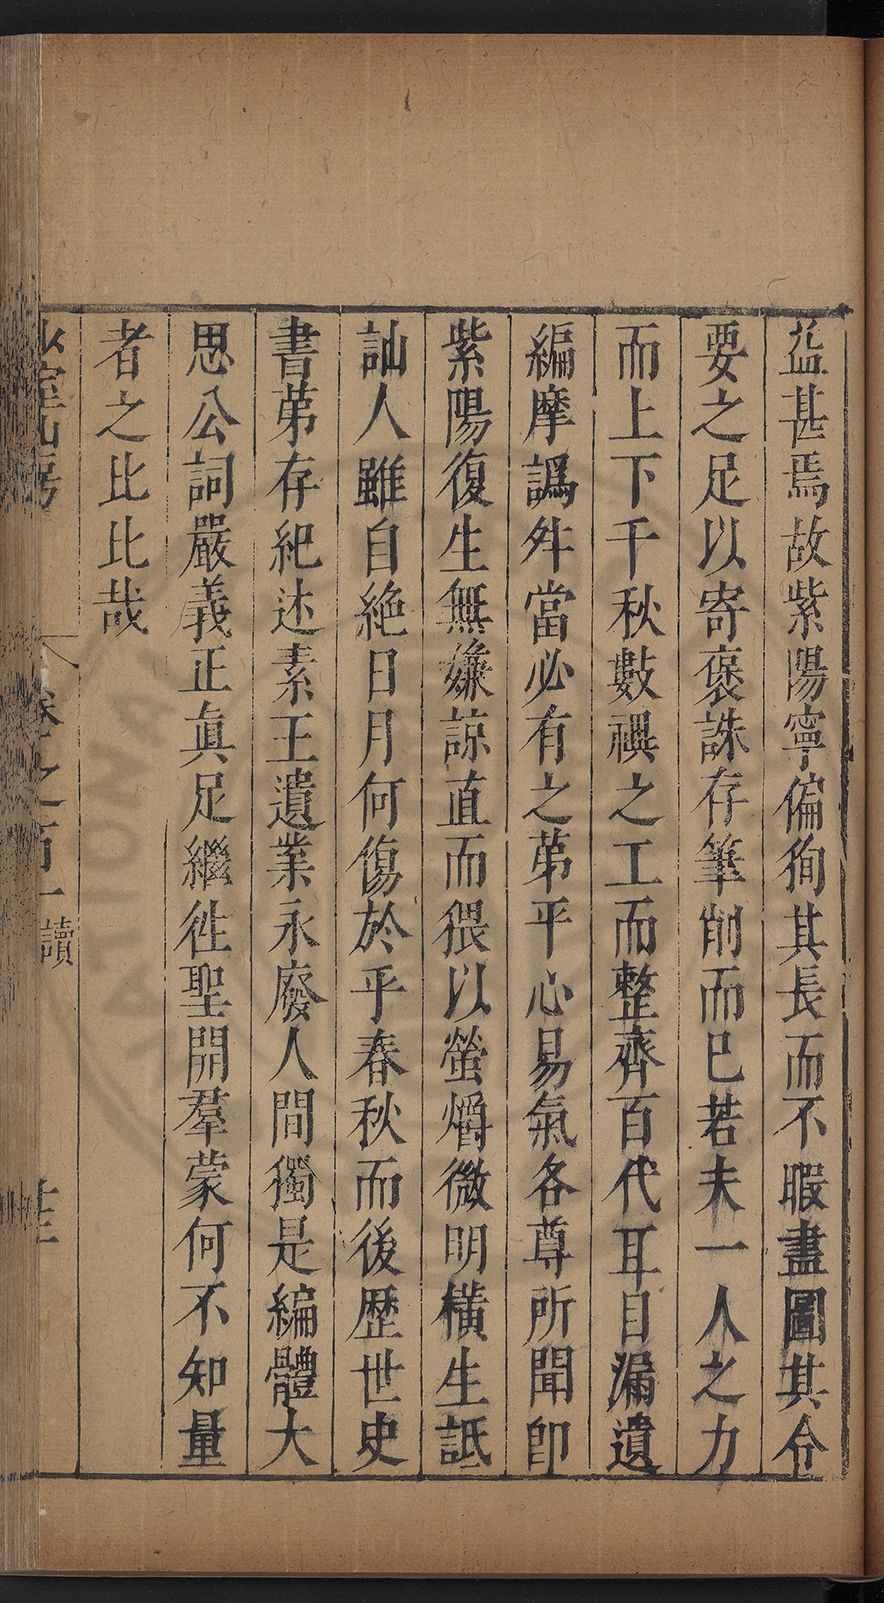 益甚焉故紫陽寧偏徇其長而不暇盡圖其全
要之足以寄褒誅存筆削而已若夫一人之力
而上下千秋數禩之工而整齊百代耳目漏遺
編摩譌舛當必有之苐平心易氣各尊所聞卽
紫陽復生無嫌諒直而猥以螢爝微明橫生詆
訕人雖自絶日月何傷於乎春秋而後歷世史
書苐存紀述素王遺業永廢人間獨是編體大
思公詞嚴義正眞足繼徃聖開羣蒙何不知量
者之比比哉
少室山房
卷之百一
讀